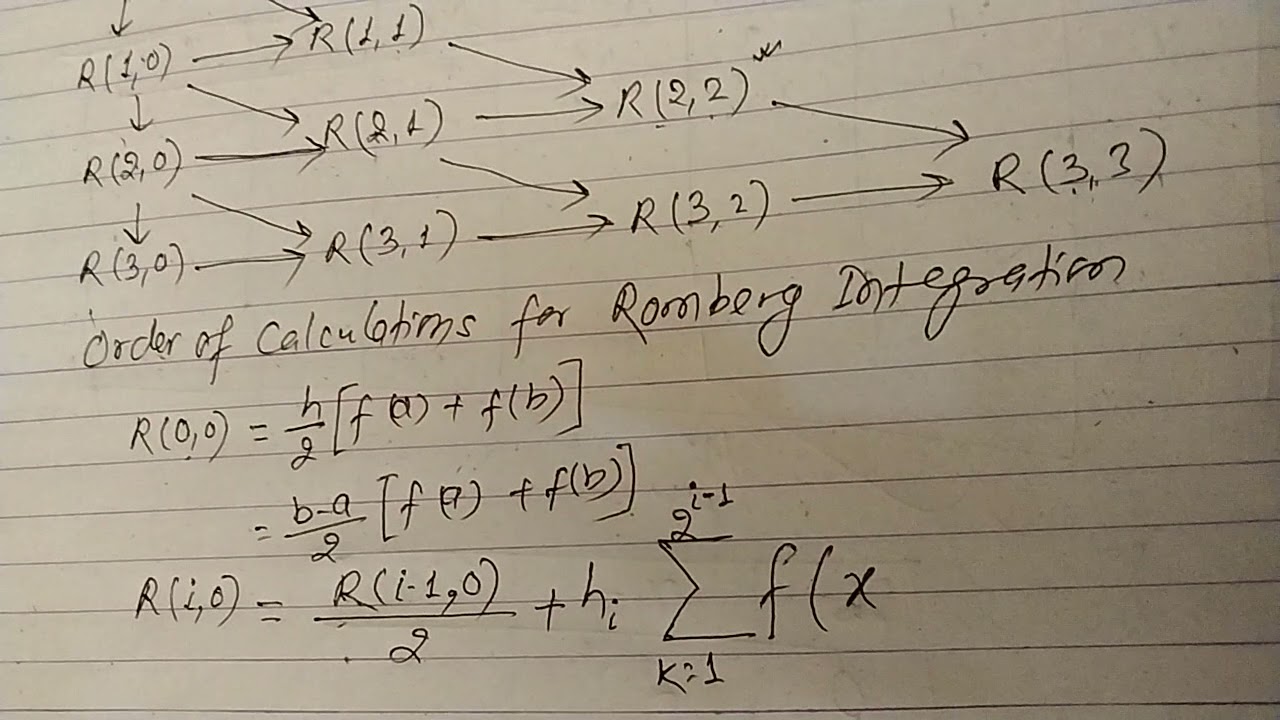 R(1,0) → R(1,1)
R(2,0) → R(2,1) → R(2,2)
R(3,0) → R(3,1) → R(3,2) → R(3,3)
Order of Calculations for Romberg Integration
R(0,0) = h/2 [f(a) + f(b)]
= b-a/2 [f(a) + f(b)]
R(i,0) = R(i-1,0)/2 + hᵢ ∑ₖ₌₁^{2^{i-1}} f(x